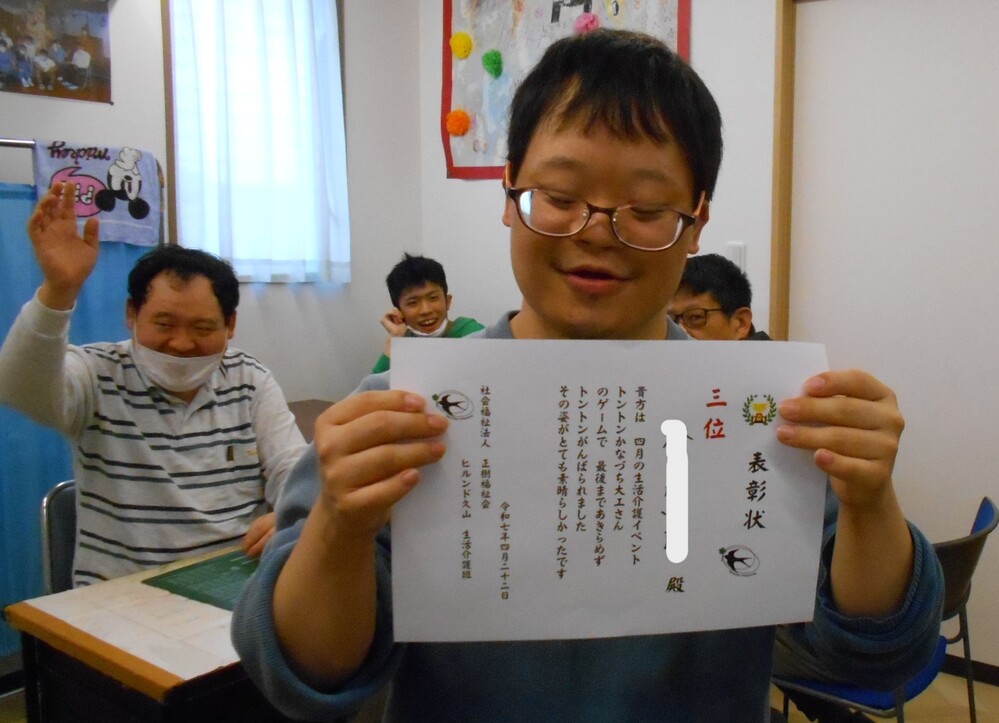 表彰状
三位
殿
貴方は 四月の生活介護イベント
トントンかなづち大工さん
のゲームで 最後まであきらめず
トントーンがんばられました
その姿がとても素晴らしかったです
令和七年四月二十二日
社会福祉法人 正樹福祉会
ヒルンド久山 生活介護班
mickey